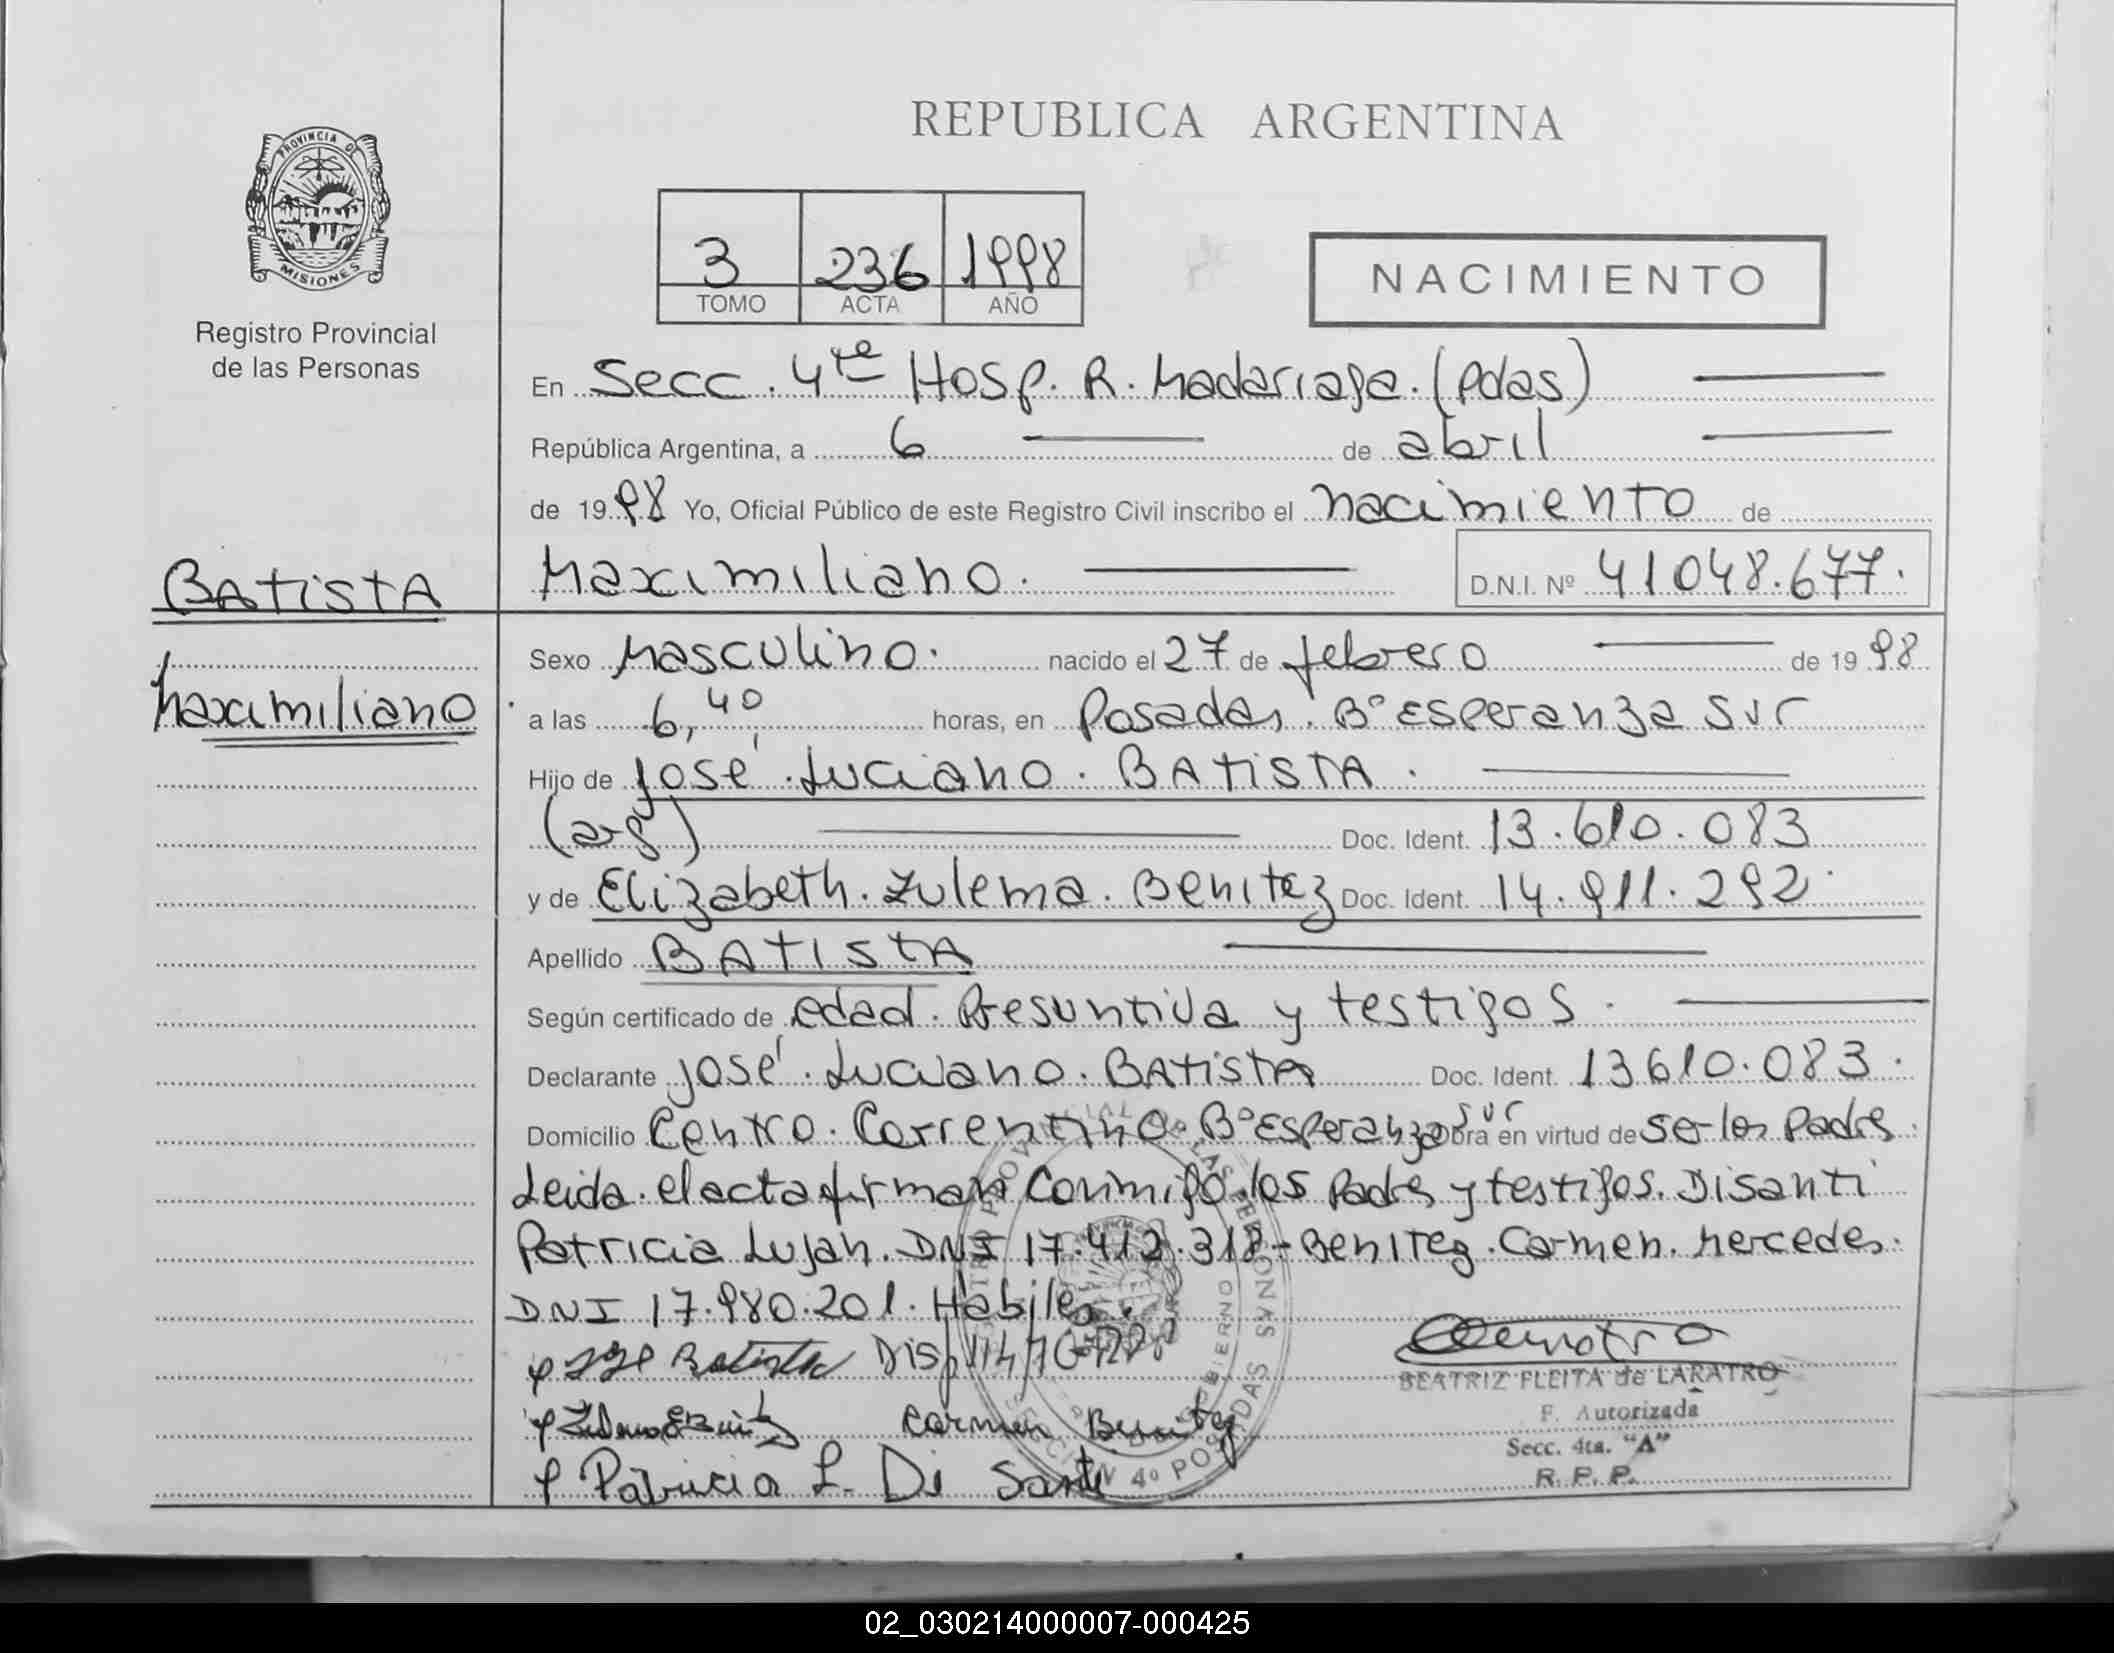 REPUBLICA ARGENTINA
PROVINCIA DE
MISIONES
Registro Provincial
de las Personas
3 236 1998
TOMO ACTA AÑO
NACIMIENTO
En Secc. 4ta Hosp. R. Madariaga. (Pdas)
República Argentina, a 6 de abril
de 1998 Yo, Oficial Público de este Registro Civil inscribo el nacimiento de
Maximiliano. D.N.I. Nº 41048.677.
BATISTA
Maximiliano
Sexo Masculino. nacido el 27 de febrero de 1998
a las 6,40 horas, en Posadas. Bº Esperanza Sur
Hijo de José Luciano. BATISTA.
(arg) Doc. Ident. 13.610.083
y de Elizabeth. Zulema. Benitez Doc. Ident. 14.911.292.
Apellido BATISTA
Según certificado de edad. Presuntiva y testigos.
Declarante José. Luciano. BATISTA Doc. Ident. 13610.083.
Domicilio Centro. Correntino. Bº Esperanza Sur Obra en virtud de ser los Padres.
Leida el acta firman conmigo los Padres y testigos. Disanti
Patricia Lujan. DNI 17.412.318 - Benitez. Carmen. Mercedes.
DNI 17.980.201. Hábiles.
Batista Disp
Carmen Benitez
Patricia L. Di Santi
BEATRIZ FLEITA de LARATRO
F. Autorizada
Secc. 4ta. "A"
R. P. P.
SECCION 4º POSADAS
02_030214000007-000425